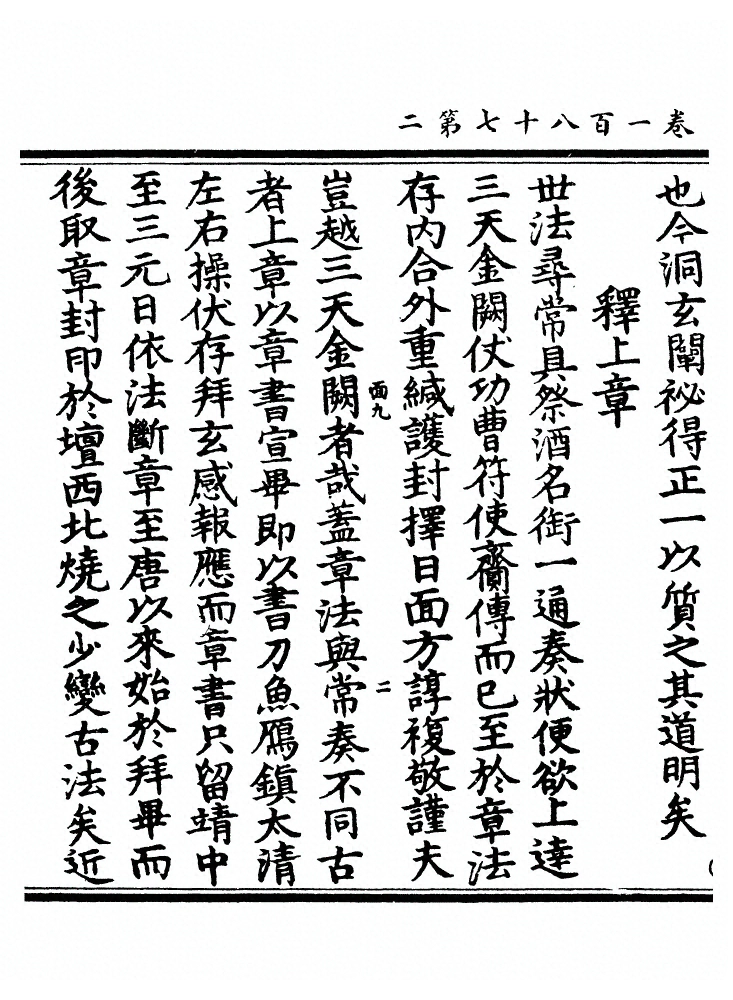 卷一百八十七第二
也今洞玄闡祕得正一以質之其道明矣
釋上章
世法尋常具祭酒名銜一通奏狀便欲上達
三天金闕仗功曹符使齎傳而已至於章法
存內合外重緘護封擇日面方諄複敬謹夫
面九
二
豈越三天金闕者哉蓋章法與常奏不同古
者上章以章書宣畢即以書刀魚鴈鎮太清
左右操伏存拜玄感報應而章書只留靖中
至三元日依法斷章至唐以來始於拜畢而
後取章封印於壇西北燒之少變古法矣近